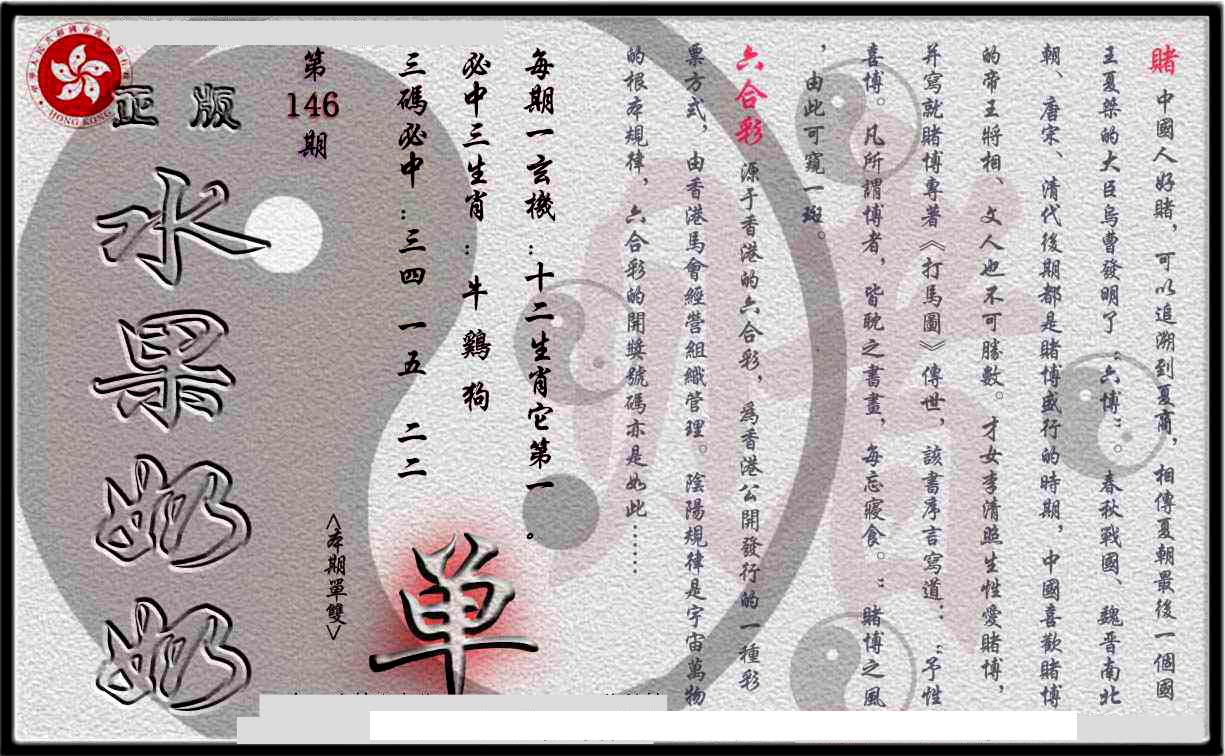 賭 中國人好賭，可以追溯到夏商，相傳夏朝最後一個國
王夏桀的大臣烏曹發明了“六博”。春秋戰國、魏晋南北
朝、唐宋、清代後期都是賭博盛行的時期，中國喜歡賭博
的帝王將相、文人也不可勝數。才女李清照生性愛賭博，
并寫就賭博專著《打馬圖》傳世，該書序言寫道：“予性
喜博。凡所謂博者，皆耽之書畫，每忘寢食。”賭博之風
，由此可窺一斑。
六合彩 源于香港的六合彩，爲香港公開發行的一種彩
票方式，由香港馬會經營組織管理。陰陽規律是宇宙萬物
的根本規律，六合彩的開獎號碼亦是如此……
每期一玄機：十二生肖它第一。
必中三生肖：牛 鷄 狗
三碼必中：三四 一五 二二
单
<本期單雙>
第
146
期
正版
水果奶奶
HONG KONG